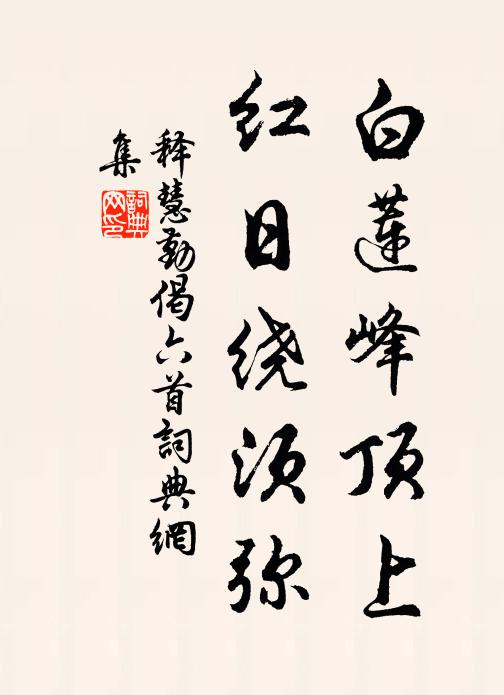 白莲峰顶上
红日绕须弥
释慧勤偈六首詞典網
集
詞典网印